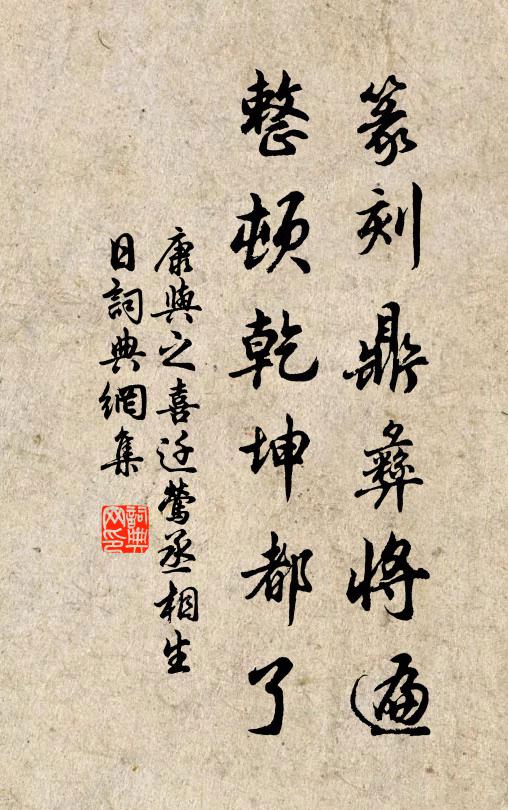 篆刻鼎彝将遍
整頓乾坤都了
康與之喜迁鶯丞相生
日詞典網集
詞典
网印